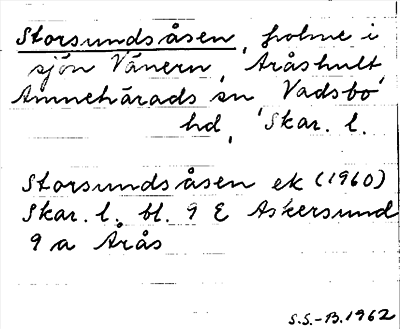 Storsundsåsen, holme i
sjön Vänern, Aråshult,
Amnehärads sn, Vadsbo
hd, Skar. l.
Storsundsåsen ek (1960)
Skar. l. bl. 9 E Askersund
9 a Årås
S.S.-B. 1962